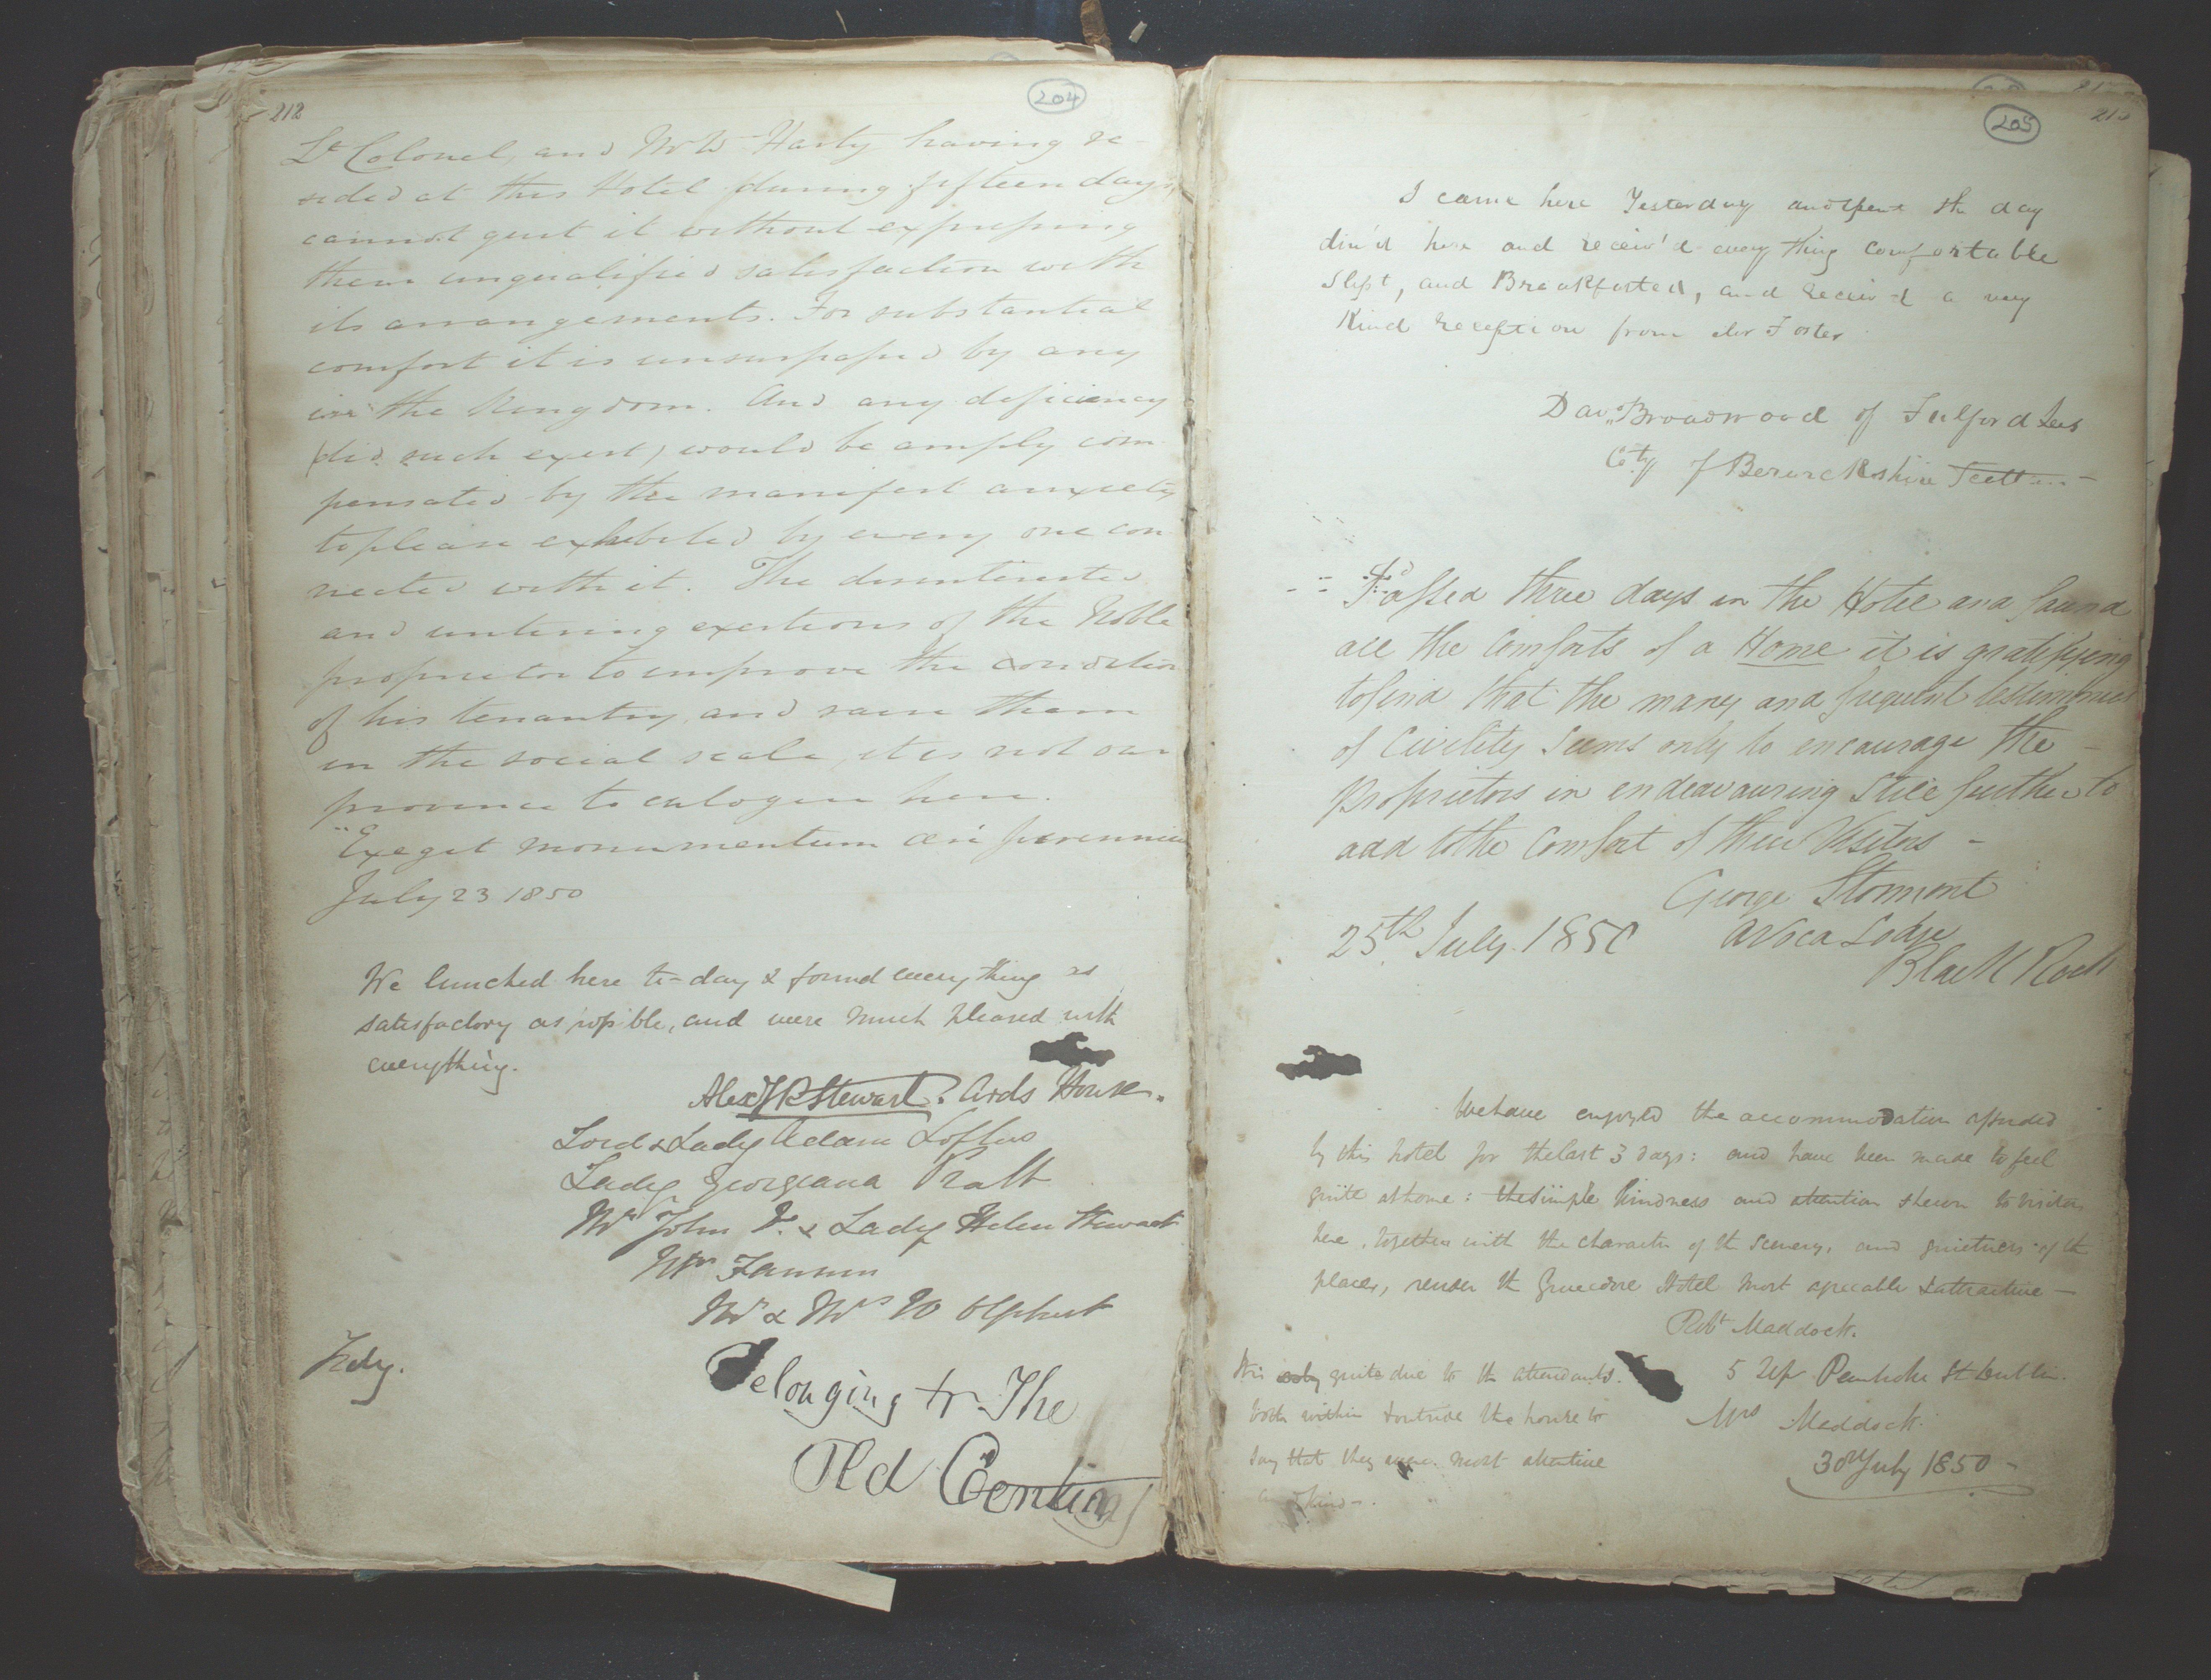 212
204
Lt Colonel, and Mrs Harty having re-
sided at this Hotel during fifteen days,
cannot quit it without expressing
their unqualified satisfaction with
its arrangements. For substantial
comfort it is unsurpassed by any
in the Kingdom. And any deficiency
(did such exist) would be amply com-
pensated by the manifest anxiety
to please exhibited by every one con
nected with it. The disinterested
and untiring exertions of the Noble
proprietor to improve the condition
of his tenantry and raise them
in the social scale, it is not our
province to eulogise here.
"Exegit monumentum ære perennius
July 23 1850
We lunched here to-day & found everything as
satisfactory as possible, and were much pleased with
everything.
Alexr Stewart. Ards House.
Lord & Lady Adam Loftus
Lady Georgiana Pratt
Mr John V. & Lady Helen Stewart
Mr & Mrs W Olphert
elonging to The
Old
205
I came here Yesterday and spent the day
din'd here and receiv'd every thing comfortable
Slept, and Breakfasted, and receiv'd a very
Kind reception from Mr Foster
Davd Broadwood of Fulford Lees
Cty of Berwickshire
Passed three days in the Hotel and found
all the Comforts of a Home it is gratifying
to find that the many and frequent testimonies
of Civility Seems only to encourage the
Proprietors in endeavouring Still further to
add to the Comfort of their Visitors -
George Stormont
25th July 1850 Avoca Lodge
Black Rock
We have enjoyed the accommodation afforded
by this hotel for the last 3 days: and have been made to feel
quite at home: the simple kindness and attention shewn to visitors
here, together with the character of the scenery, and quietness of the
place, render the Gweedore Hotel most agreeable & attractive —
Robt Maddock.
5 Upr Pembroke St Dublin.
Mrs Maddock.
30th July 1850 -
'tis only quite due to the attendants
both within & outside the house to
say that they were most attentive
and kind.